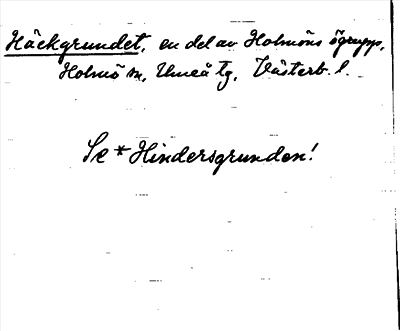 Häckgrundet, en del av Holmöns ögrupp,
Holmö sn, Umeå tg, Västerb. l.
Se * Hindersgrunden!